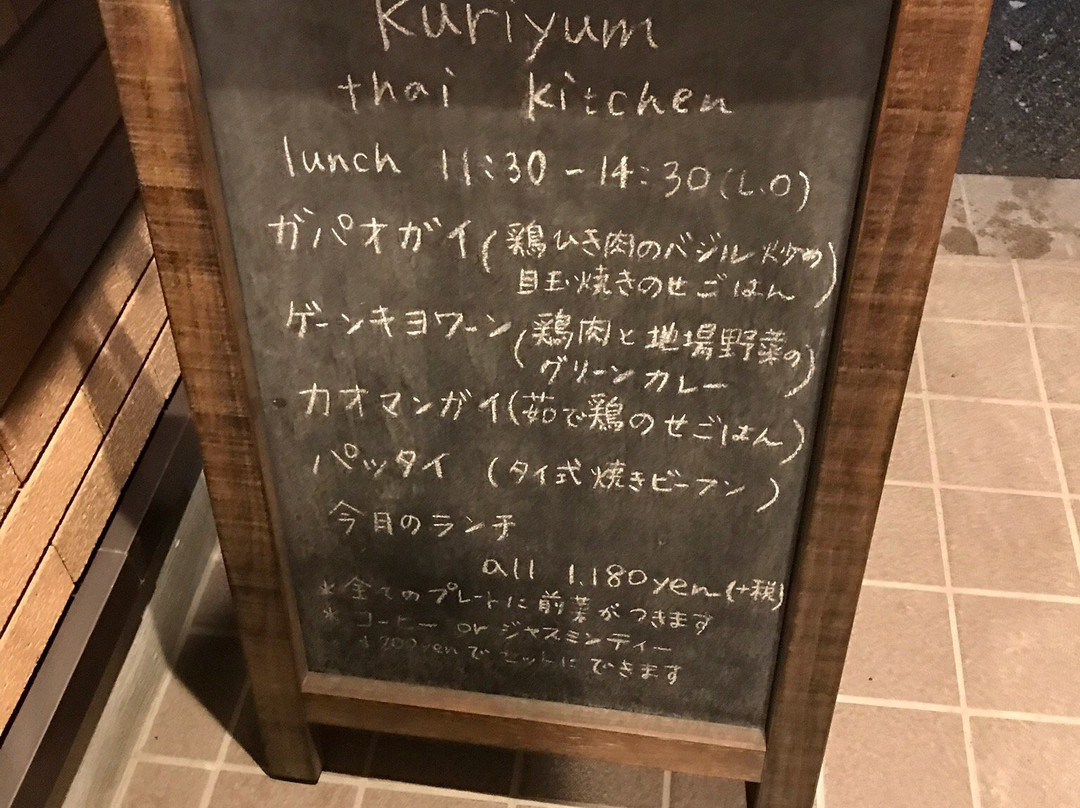 Kuriyum
thai kitchen
lunch 11:30-14:30(L.O)
ガパオガイ(鶏ひき肉のバジル炒め
目玉焼きのせごはん)
ゲーンキヨワーン(鶏肉と地場野菜の
グリーンカレー)
カオマンガイ(茹で鶏のせごはん)
パッタイ (タイ式焼きビーフン)
今月のランチ
all 1.180yen(+税)
*全てのプレートに前菜がつきます
*コーヒー or ジャスミンティー
+200yenでセットにできます